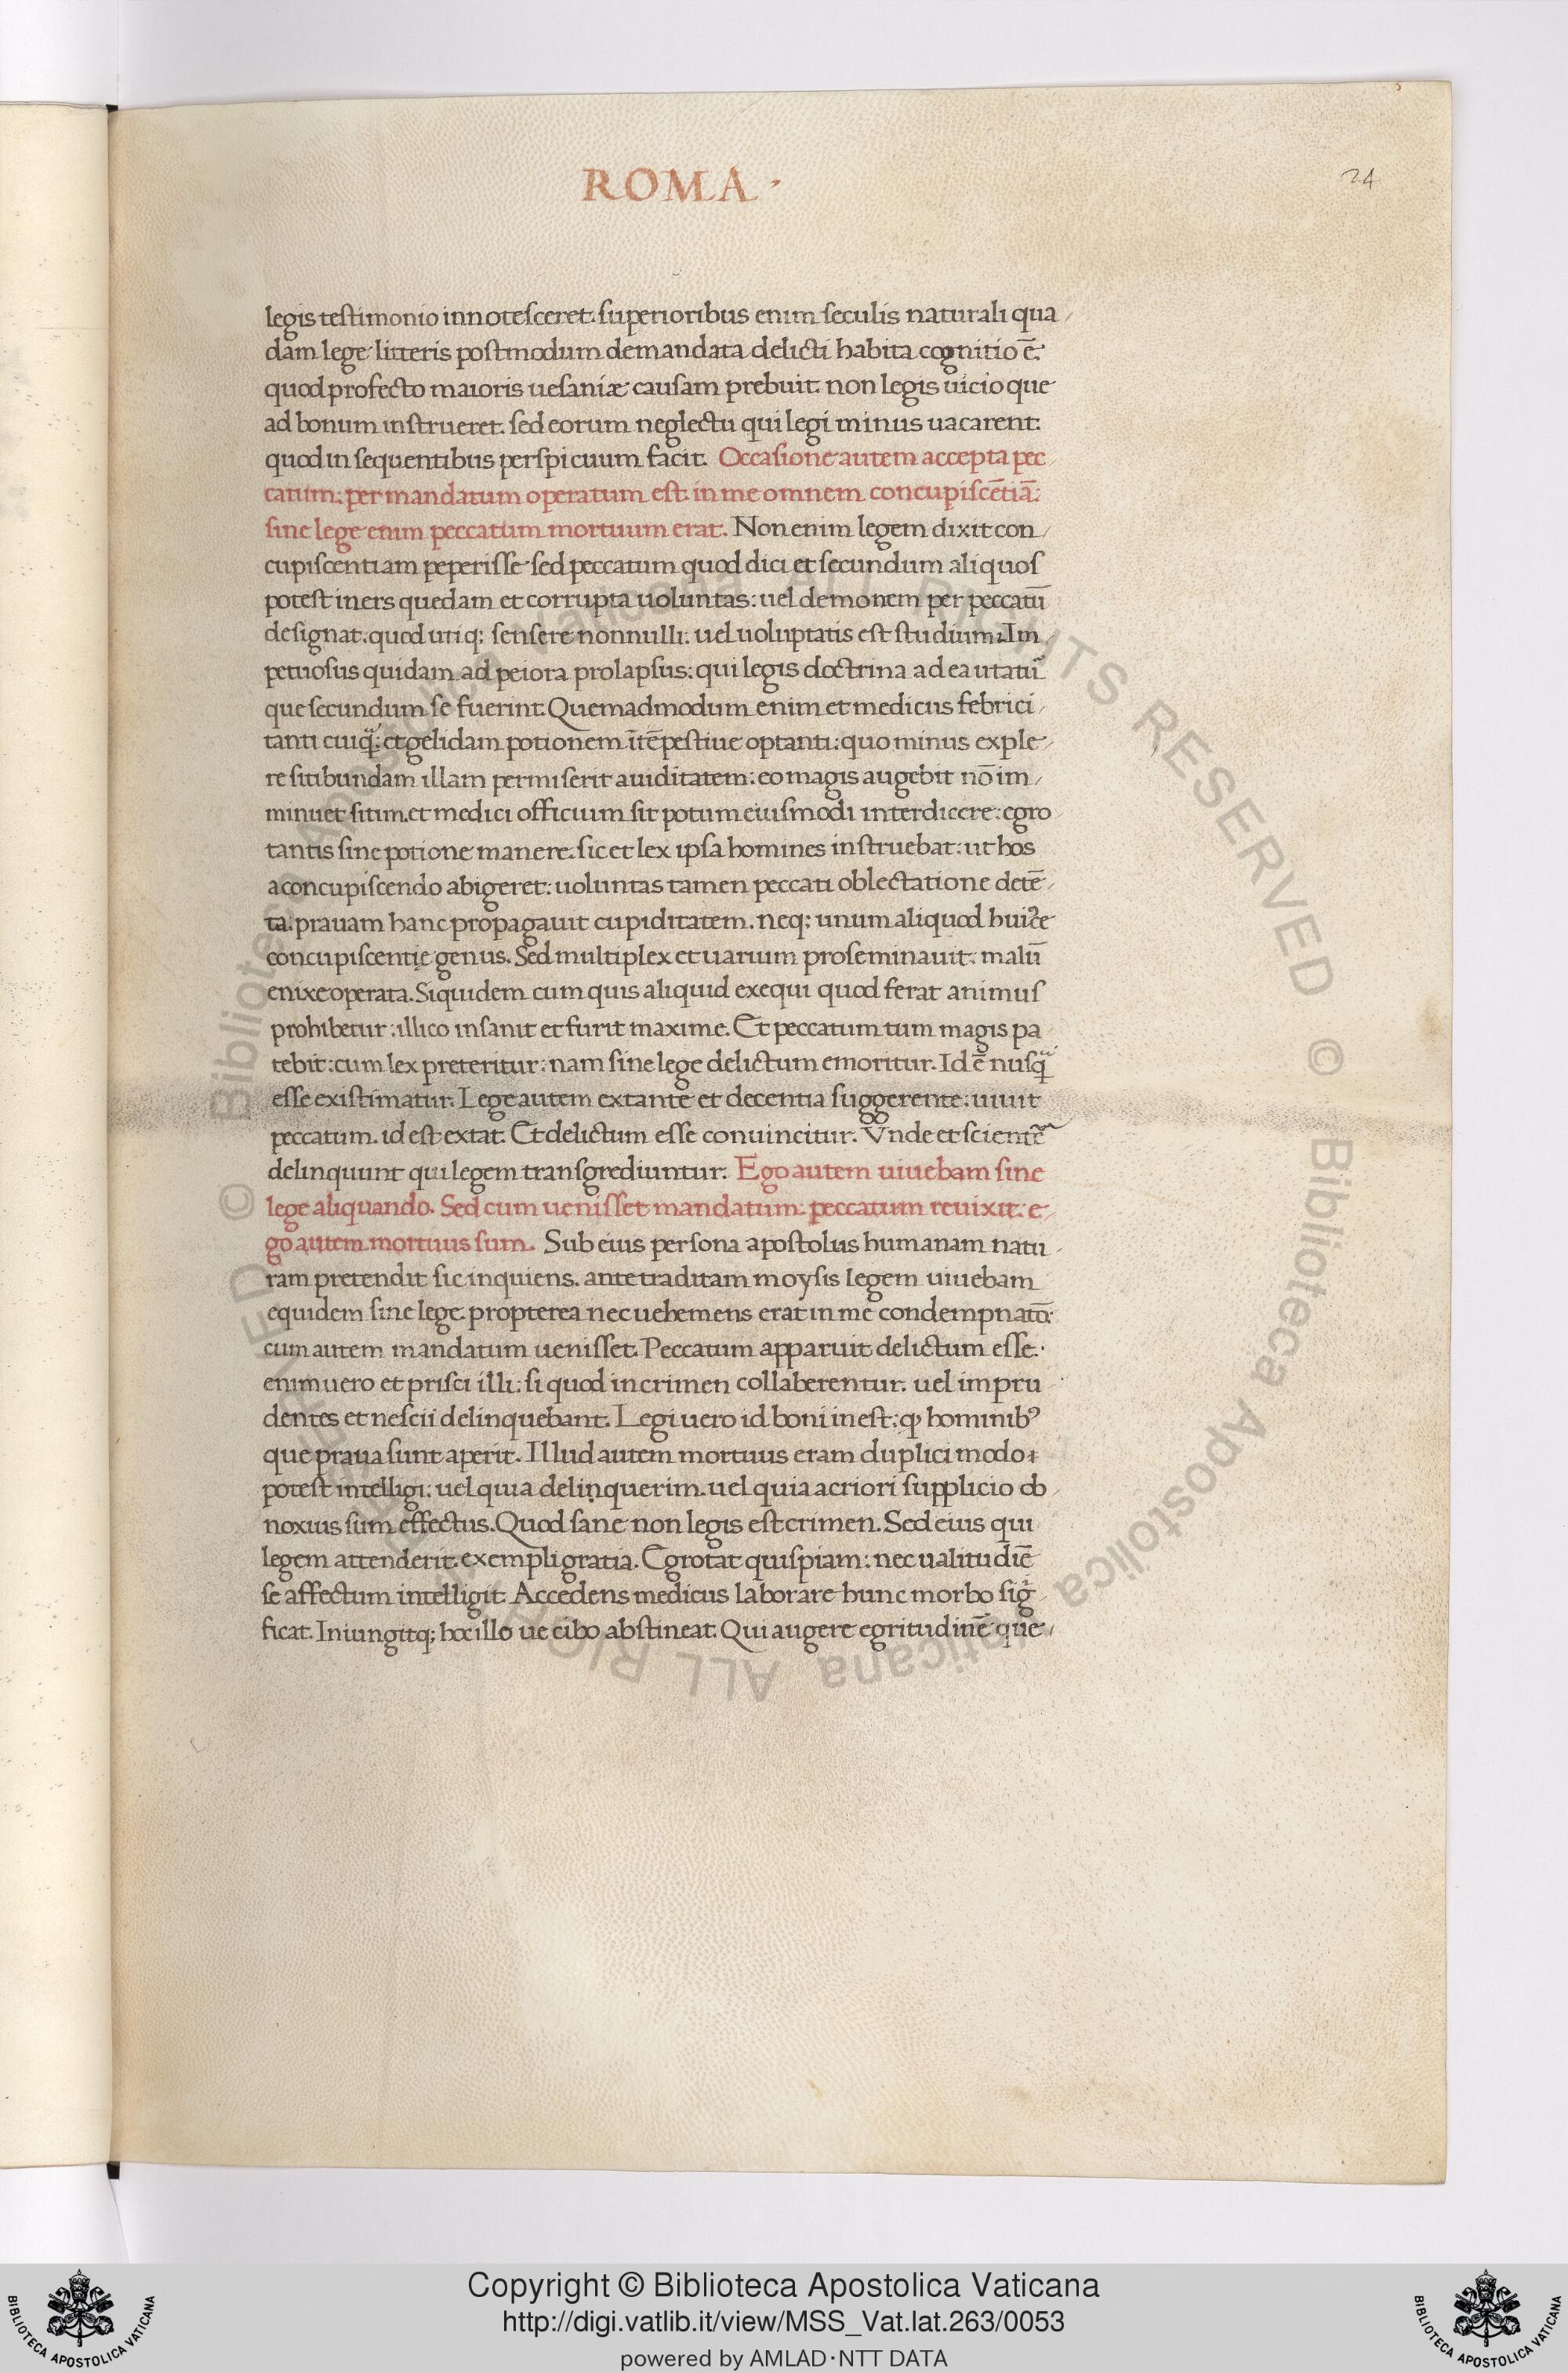 ROMA·
24
legis testimonio innotesceret. superioribus enim seculis naturali qua
dam lege litteris postmodum demandata delicti habita cognitio ē.
quod profecto maioris uesaniæ causam prebuit. non legis uicio que
ad bonum instrueret. sed eorum neglectu qui legi minus uacarent.
quod in sequentibus perspicuum facit. Occasione autem accepta pec
catum: per mandatum operatum est in me omnem concupiscētiā:
sine lege enim peccatum mortuum erat. Non enim legem dixit con
cupiscentiam peperisse sed peccatum quod dici et secundum aliquos
potest iners quedam et corrupta uoluntas: uel demonem per peccatū
designat. quod utiq; sensere nonnulli. uel uoluptatis est studium. Im
petuosus quidam ad peiora prolapsus: qui legis doctrina ad ea utatū
que secundum se fuerint. Quemadmodum enim et medicus febrici
tanti cuiq: et gelidam potionem ītēpestiue optanti: quo minus exple
re sitibundam illam permiserit auiditatem: eo magis augebit nō im
minuet sitim. et medici officium sit potum eiusmodi interdicere: egro
tantis sine potione manere. sic et lex ipsa homines instruebat: ut hos
a concupiscendo abigeret: uoluntas tamen peccati oblectatione detē
ta. prauam hanc propagauit cupiditatem. neq; unum aliquod huic̄e
concupiscentię genus. Sed multiplex et uarium proseminauit. malū
enixe operata. Siquidem cum quis aliquid exequi quod ferat animus
prohibetur: illico insanit et furit maxime. Et peccatum tum magis pa
tebit: cum lex preteritur: nam sine lege delictum emoritur. Id ē nusq̄
esse existimatur. Lege autem extante et decentia suggerente: uiuit
peccatum. id est extat. Et delictum esse conuincitur. Vnde et scientē
delinquunt qui legem transgrediuntur. Ego autem uiuebam sine
lege aliquando. Sed cum uenisset mandatum: peccatum reuixit: e
go autem mortuus sum. Sub eius persona apostolus humanam natu
ram pretendit sic inquiens. ante traditam moysis legem uiuebam
equidem sine lege. propterea nec uehemens erat in me condempnatō:
cum autem mandatum uenisset. Peccatum apparuit delictum esse.
enimuero et prisci illi: si quod in crimen collaberentur. uel impru
dentes et nescii delinquebant. Legi uero id boni inest: qꝫ hominibꝰ
que praua sunt aperit. Illud autem mortuus eram duplici modo
potest intelligi: uel quia delinquerim. uel quia acriori supplicio ob
noxius sum effectus. Quod sane non legis est crimen. Sed eius qui
legem attenderit. exempli gratia. Egrotat quispiam: nec ualitudiē
se affectum intelligit. Accedens medicus laborare hunc morbo sig
ficat. Iniungitq; hoc illo ue cibo abstineat. Qui augere egritudinē que
© Biblioteca Apostolica Vaticana ALL RIGHTS RESERVED
Copyright © Biblioteca Apostolica Vaticana
http://digi.vatlib.it/view/MSS_Vat.lat.263/0053
powered by AMLAD·NTT DATA
BIBLIOTECA APOSTOLICA VATICANA
BIBLIOTECA APOSTOLICA VATICANA